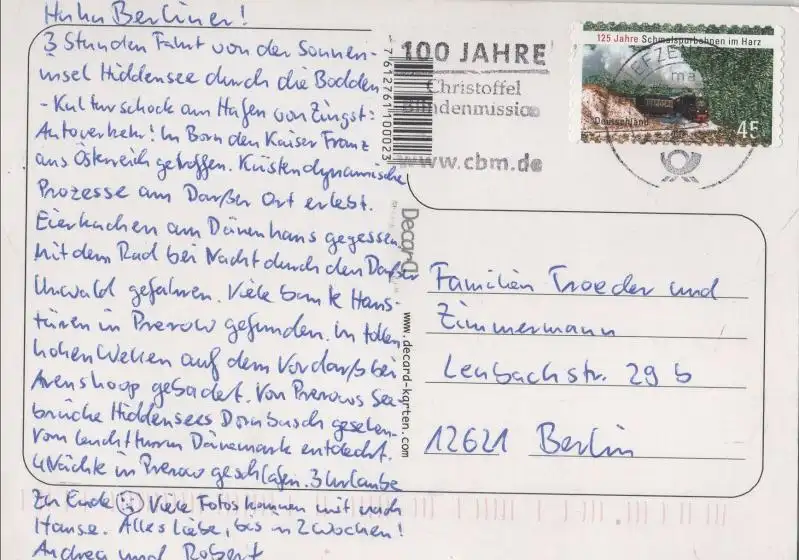 Huhu Berliner!
3 Stunden Fahrt von der Sonnen-
insel Hiddensee durch die Bodden
- Kulturschock am Hafen von Zingst:
Autoverkehr! In Born den Kaiser Franz
aus Österreich getroffen. Küstendynamische
Prozesse am Darßer Ort erlebt.
Eierkuchen am Dünenhaus gegessen,
mit dem Rad bei Nacht durch den Darßer
Urwald gefahren. Viele bunte Haus-
türen in Prerow gefunden. In tollen
hohen Wellen auf dem Vordarß bei
Ahrenshoop gebadet. Von Prerows See-
brücke Hiddensees Dornbusch gesehen.
Vom Leuchtturm Dänemark entdeckt.
4 Nächte in Prerow geschlafen. 3 Urlaube
zu Ende Viele Fotos kommen mit nach
Hause. Alles Liebe, bis in 2 Wochen!
Andrea und Robert
7612761100023
Decard
www.decard-karten.com
100 JAHRE
Christoffel
Blindenmission
www.cbm.de
125 Jahre Schmalspurbahnen im Harz
Deutschland
45
Familien Troeder und
Zimmermann
Lenbachstr. 29 b
12621 Berlin